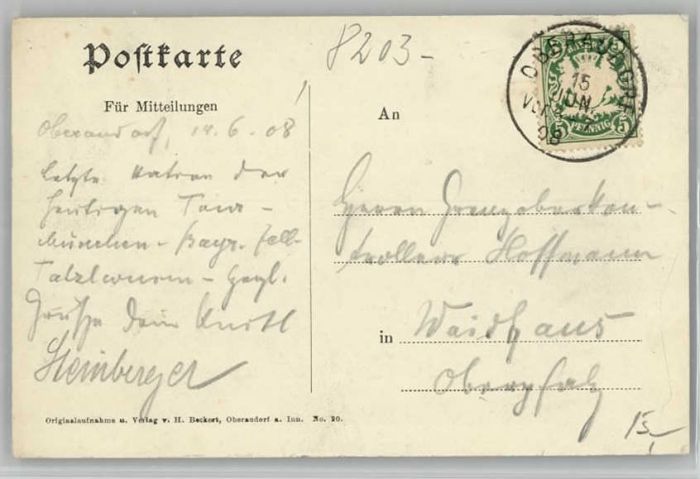 Postkarte
8203-
Für Mitteilungen
Oberaudorf, 14.6.08
letzte Station der
heutigen Tour -
München - Bayr. Zell -
Tatzlwurm -
Grüße Dein
Steinberger
An
Herrn Grenzoberkon-
trolleur Hoffmann
in Waidhaus
Oberpfalz
OBERAUDORF
15
JUN.
Vor.
08
5 PFENNIG 5
Originalaufnahme u. Verlag v. H. Beckert, Oberaudorf a. Inn. No. 20.
15,